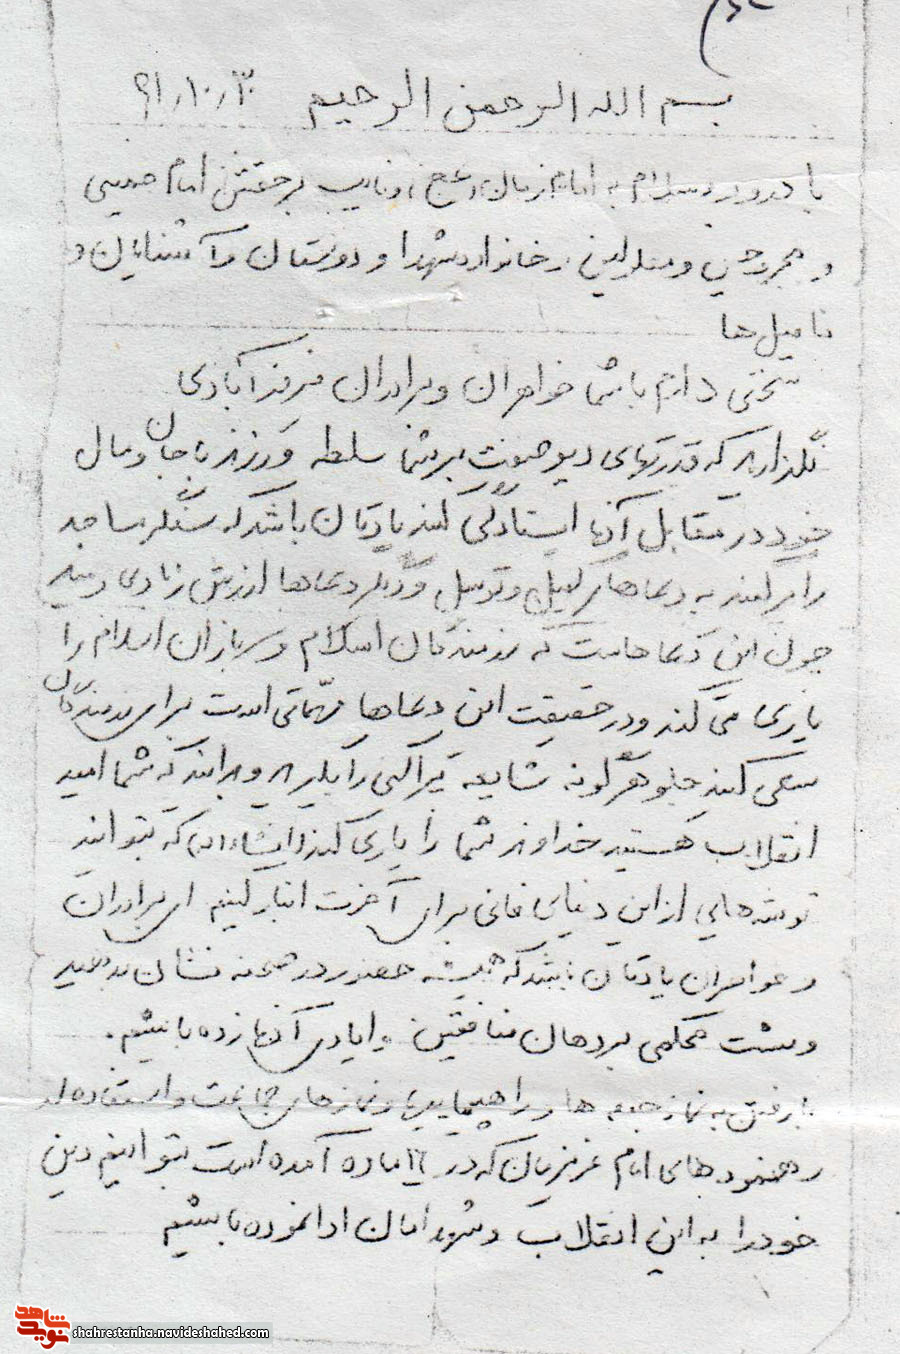 بسم الله الرحمن الرحیم ۶۱٫۱۰٫۳۰
با درود و سلام به امام زمان (عج) و نایب برحقش امام خمینی
و مجروحین و معلولین و خانواده شهدا و دوستان و آشنایان و
فامیل ها
سخنی دارم با شما خواهران و برادران فیروزآبادی
نگذارید که قدرتهای دیو صفت بر شما سلطه ورزند با جان و مال
خود در مقابل آنها ایستادگی کنید یادتان باشد که سنگر مساجد
را پر کنید به دعاهای کمیل و توسل و دیگر دعاها ارزش زیادی دهید
چون این دعاهاست که رزمندگان اسلام و سربازان اسلام را
یاری می کند و در حقیقت این دعاها مهماتی است برای رزمندگان
سعی کنید جلو هرگونه شایعه پراکنی را بگیرید و بدانید که شما امید
انقلاب هستید خداوند شما را یاری کند (انشاءالله) که بتوانید
توشه هایی از این دنیای فانی برای آخرت انبار کنیم ای برادران
و خواهران یادتان باشد که همیشه حضور در صحنه نشان بدهید
و مشت محکمی بر دهان منافقین و ایادی آنها زده باشیم.
با رفتن به نماز جمعه ها و راهپیمایی ها و نمازهای جماعت و استفاده از
رهنمودهای امام عزیزمان که در ۱۶ ماده آمده است بتوانیم دین
خود را به این انقلاب و شهدامان ادا نموده باشیم
شاهد
نوید
shahrestanha.navideshahed.com